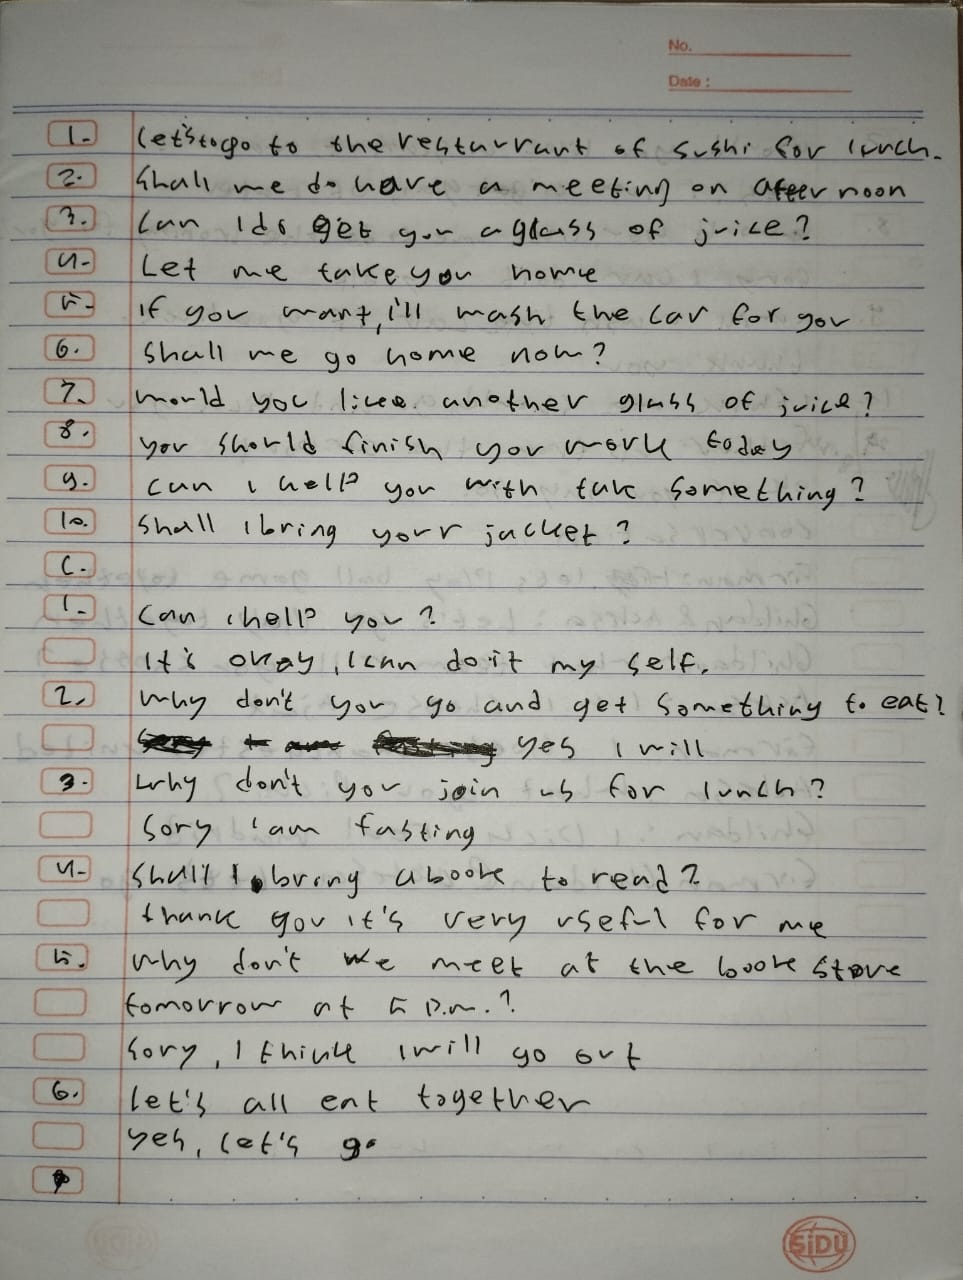 No.
Date :
1. Let's to go to the resturrant of sushi for lunch.
2. Shall we do have a meeting on afeer noon
3. Can I do get you a glass of juice?
4. Let me take you home
5. If you want, i'll wash the car for you
6. Shall we go home now?
7. would you like another glass of juice?
8. you should finish you work today
9. can i help you with tak something?
10. Shall i bring your jacket?
C.
1. Can i help you?
It's okay, I can do it my self.
2. Why don't you go and get something to eat?
yes i will
3. Why don't you join us for lunch?
Sory i'am fasting
4. Shall I bring a book to read?
thank you it's very useful for me
5. Why don't we meet at the book store
tomorrow at 5 p.m.?
Sory, I think i will go out
6. Let's all eat together
yes, let's go
SiDU